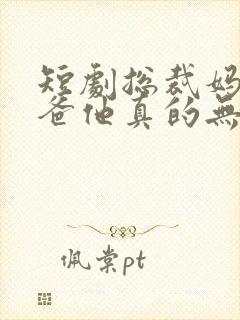 短劇總裁媽
爸他真的無
佩棠pt